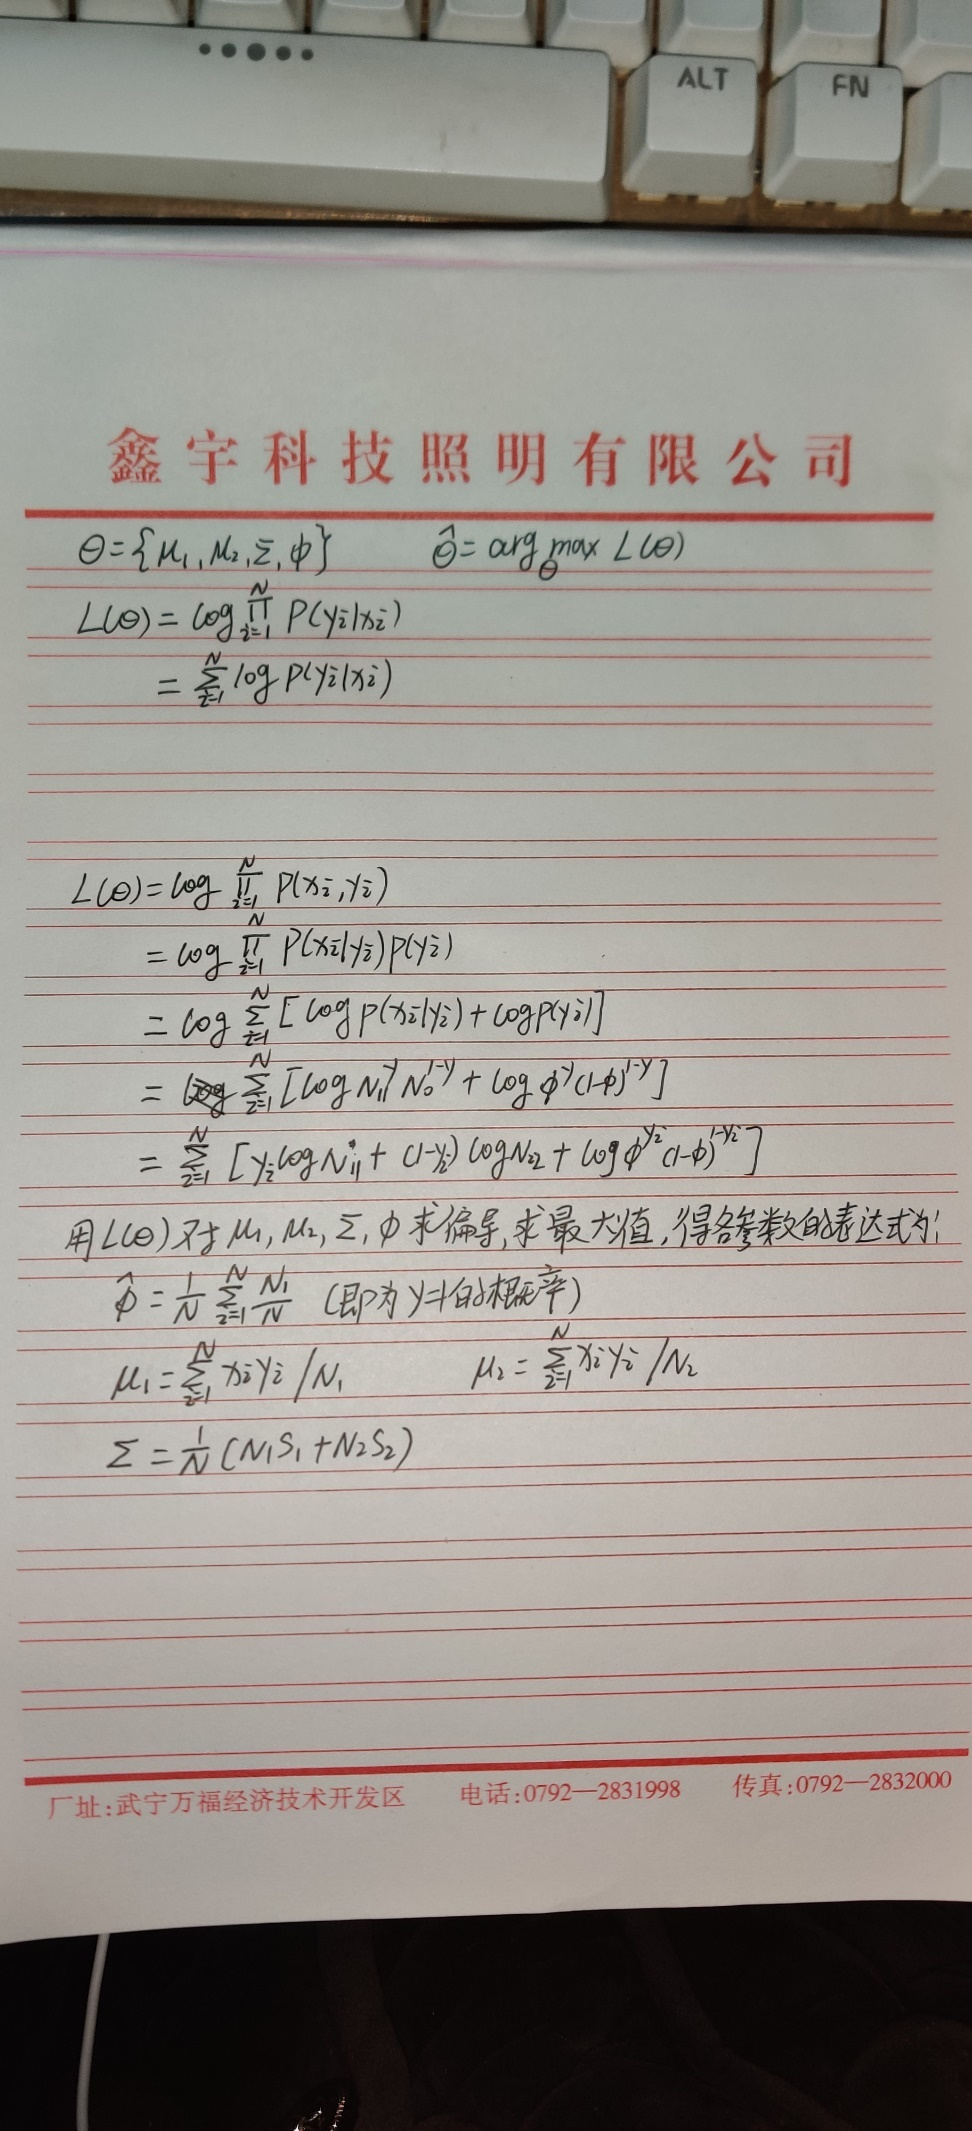 ALT FN
鑫宇科技照明有限公司
θ={μ₁,μ₂,Σ,φ} θ̂=arg max_θ L(θ)
L(θ)=log ∏_{i=1}^{N} P(yi|xi)
=∑_{i=1}^{N} log P(yi|xi)
L(θ)=log ∏_{i=1}^{N} P(xi,yi)
=log ∏_{i=1}^{N} P(xi|yi)p(yi)
=log ∑_{i=1}^{N} [log p(xi|yi)+log p(yi)]
=∑_{i=1}^{N} [log N₁₁^y N₀^{1-y} + log φ^y (1-φ)^{1-y}]
=∑_{i=1}^{N} [yi log N₁₁ + (1-yi) log N₂₂ + log φ^{yi} (1-φ)^{1-yi}]
用L(θ)对μ₁,μ₂,Σ,φ求偏导,求最大值,得各参数的表达式为:
φ̂=1/N ∑_{i=1}^{N} N₁/N (即为y=1的概率)
μ₁=∑_{i=1}^{N} xiyi/N₁ μ₂=∑_{i=1}^{N} xiyi/N₂
Σ=1/N (N₁S₁+N₂S₂)
厂址:武宁万福经济技术开发区 电话:0792—2831998 传真:0792—2832000